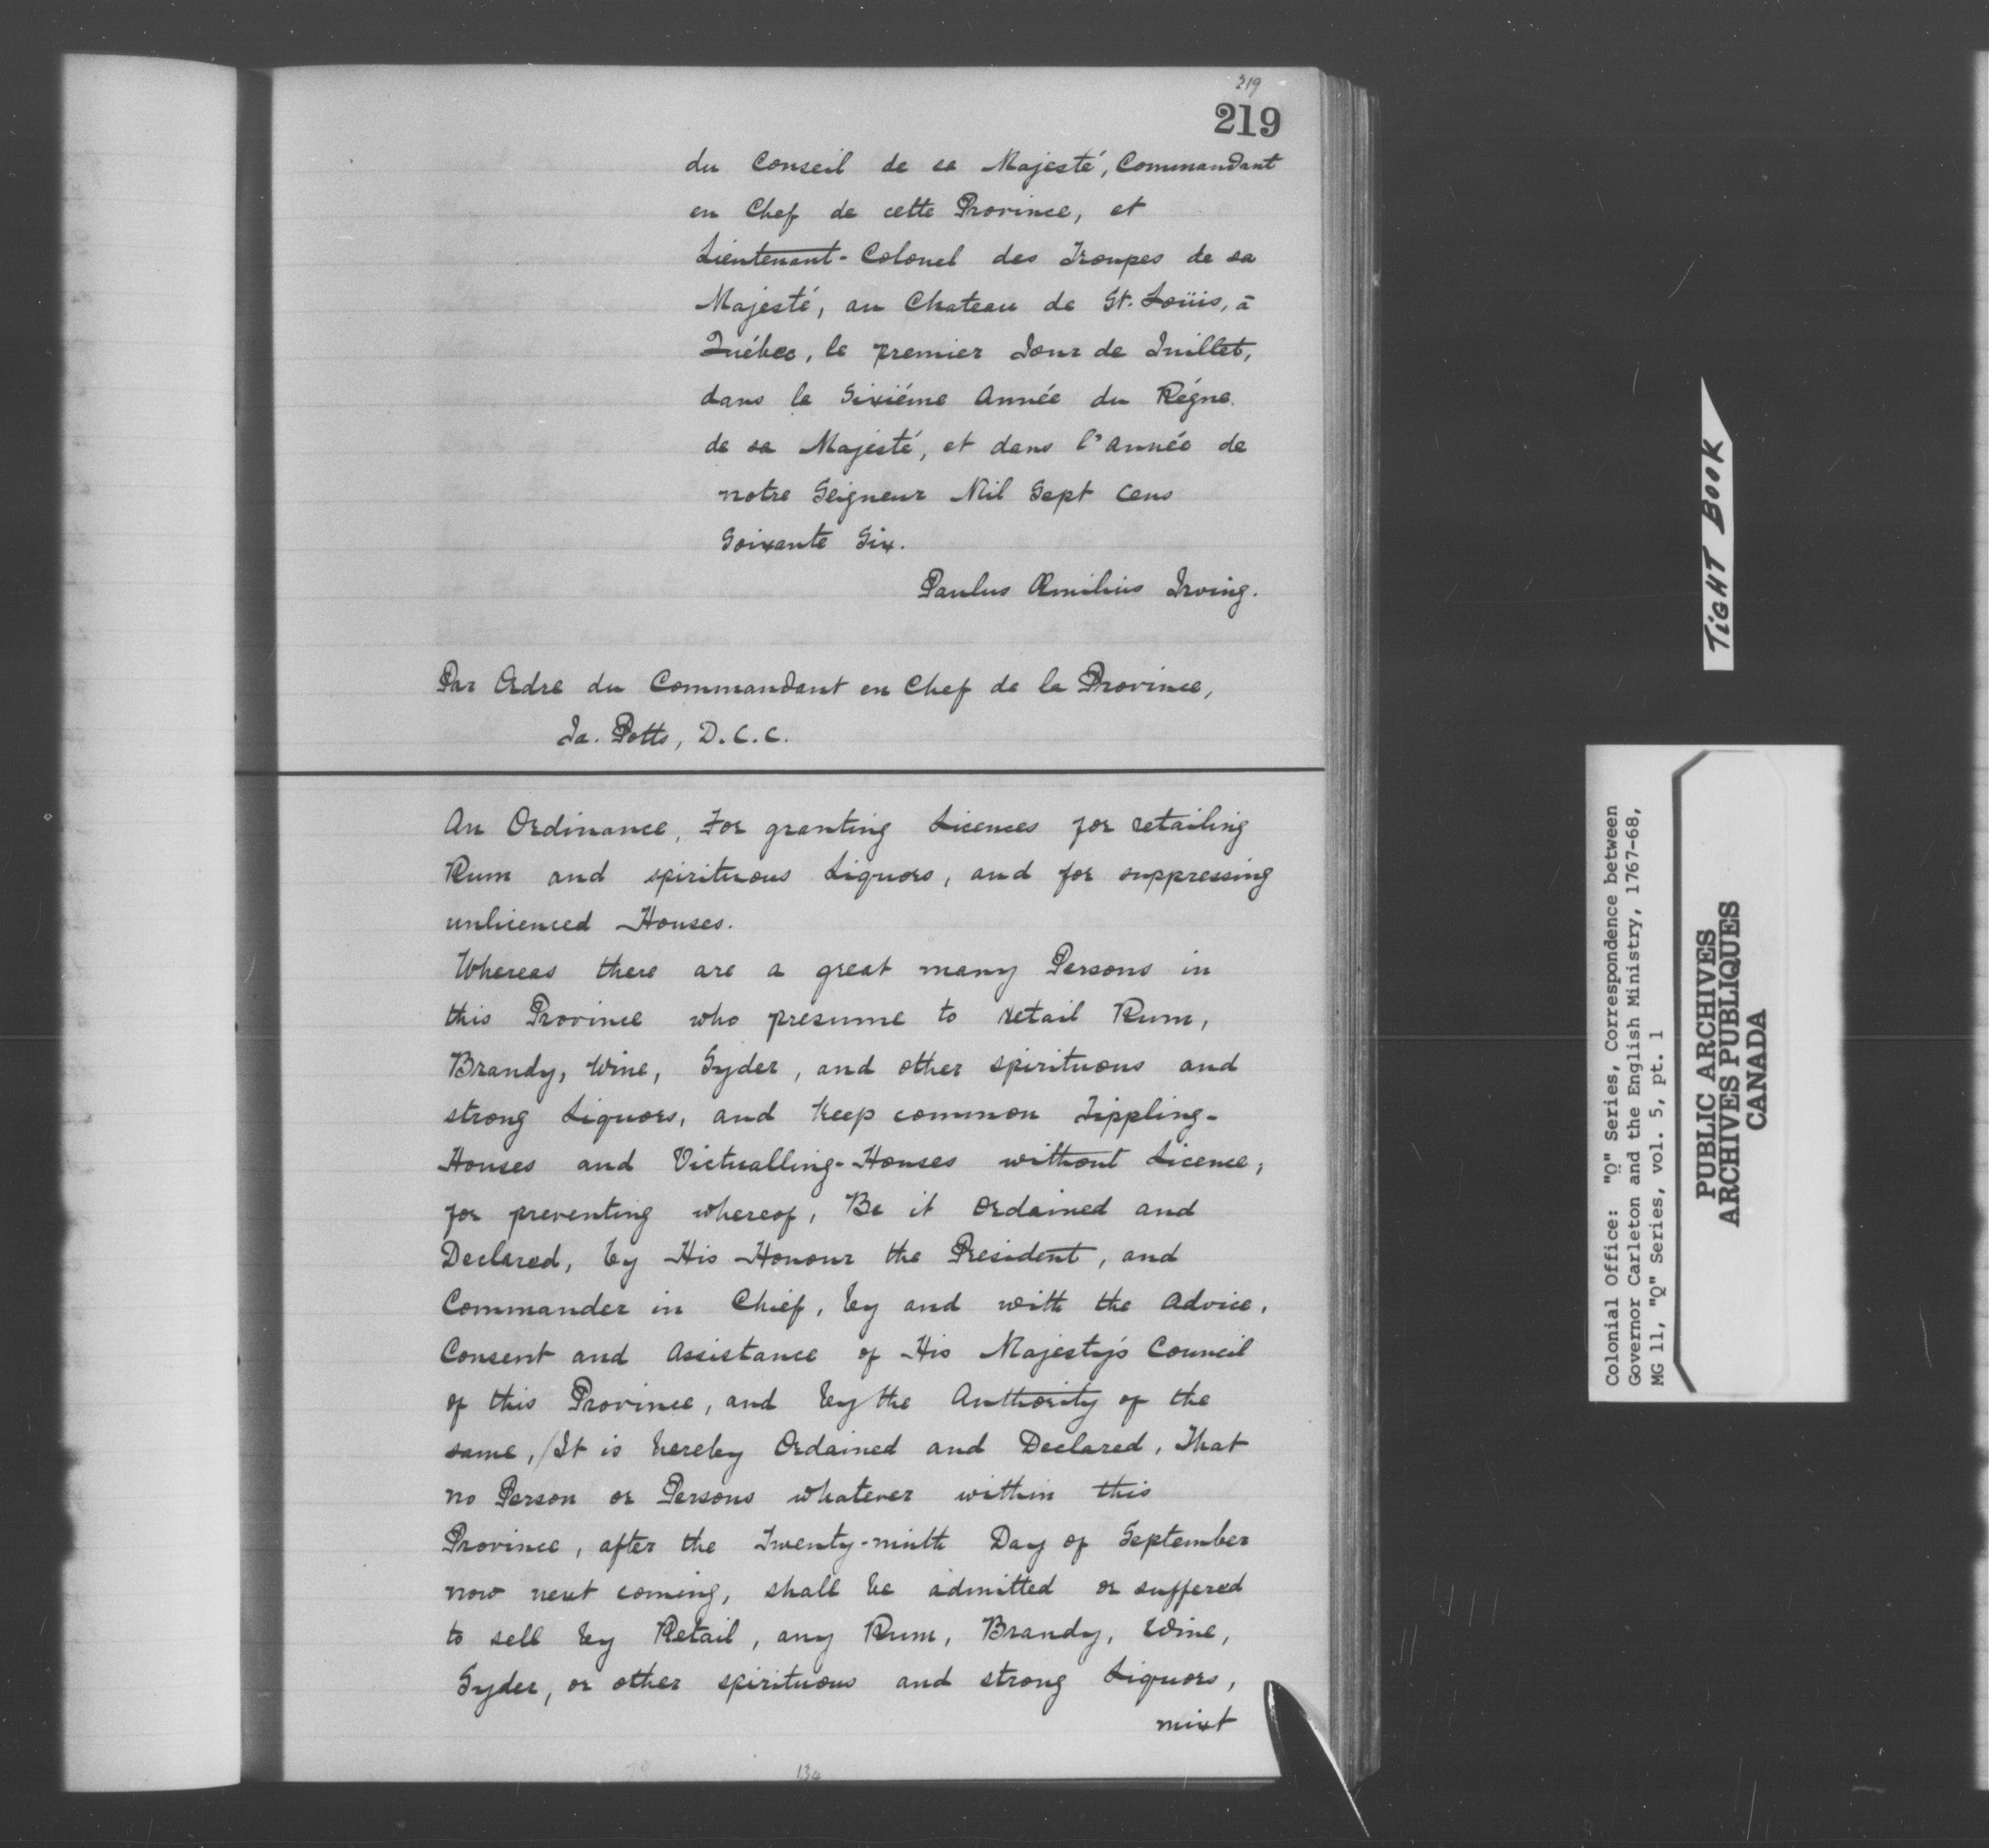 219
219
du Conseil de sa Majesté, Commandant
en Chef de cette Province, et
Lieutenant-Colonel des Troupes de sa
Majesté, au Chateau de St. Loüis, à
Québec, le premier Jour de Juillet,
dans la Sixiéme Année du Régne
de sa Majesté, et dans l'année de
notre Seigneur Mil Sept Cens
Soixante Six.
Paulus Æmilius Irving.
Par Ordre du Commandant en Chef de la Province,
Ja. Potts, D.C.C.
An Ordinance, For granting Licences for retailing
Rum and spirituous Liquors, and for suppressing
unlicenced Houses.
Whereas there are a great many Persons in
this Province who presume to retail Rum,
Brandy, Wine, Syder, and other spirituous and
strong Liquors, and keep common Tippling-
Houses and Victualling-Houses without Licence;
for preventing whereof, Be it Ordained and
Declared, by His Honour the President, and
Commander in Chief, by and with the Advice,
Consent and Assistance of His Majesty's Council
of this Province, and by the Authority of the
same, It is hereby Ordained and Declared, That
no Person or Persons whatever within this
Province, after the Twenty-ninth Day of September
now next coming, shall be admitted or suffered
to sell by Retail, any Rum, Brandy, Wine,
Syder, or other spirituous and strong Liquors,
mixt
134
TIGHT BOOK
Colonial Office: "Q" Series, Correspondence between
Governor Carleton and the English Ministry, 1767-68,
MG 11, "Q" Series, vol. 5, pt. 1
PUBLIC ARCHIVES
ARCHIVES PUBLIQUES
CANADA